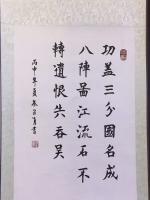 功盖三分國名成
八陣啚江流石不
轉遺恨失吞吴
丙申年夏
書